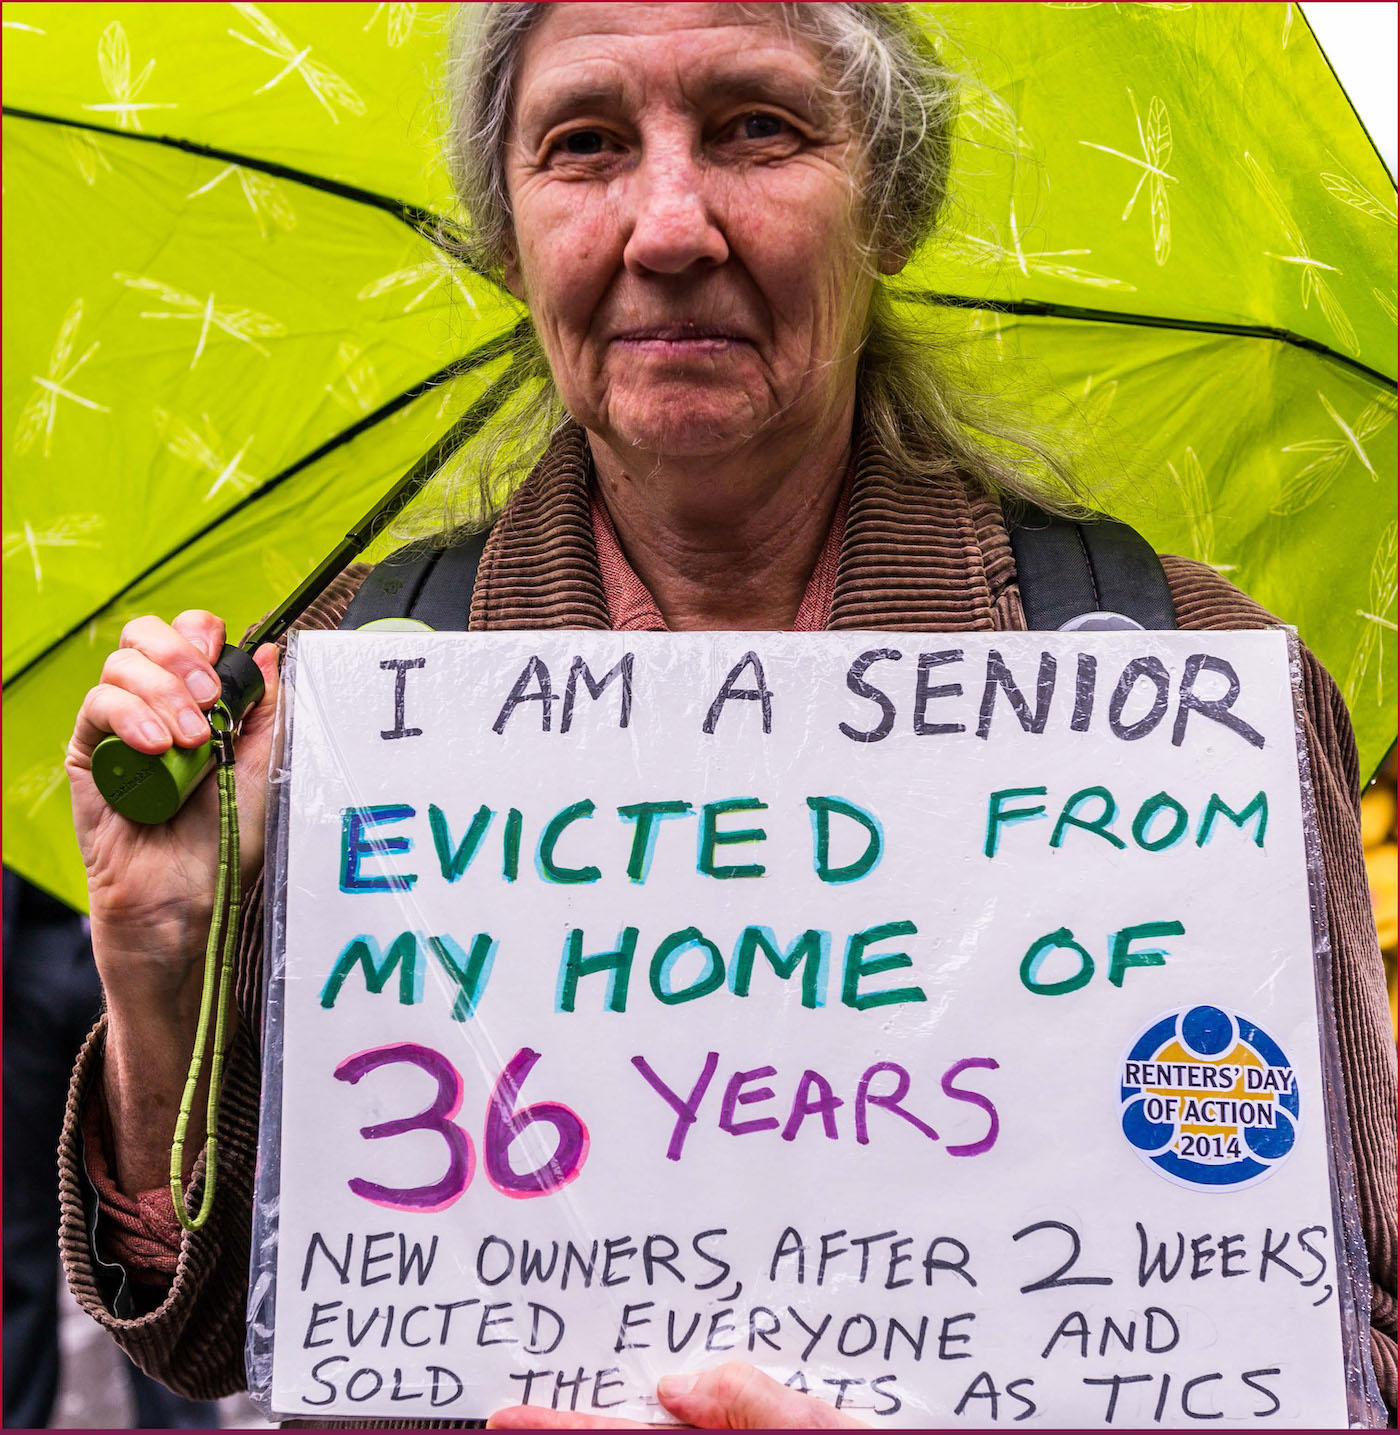 I AM A SENIOR
EVICTED FROM
MY HOME OF
36 YEARS
RENTERS' DAY
OF ACTION
2014
NEW OWNERS, AFTER 2 WEEKS,
EVICTED EVERYONE AND
SOLD THE AS TICS